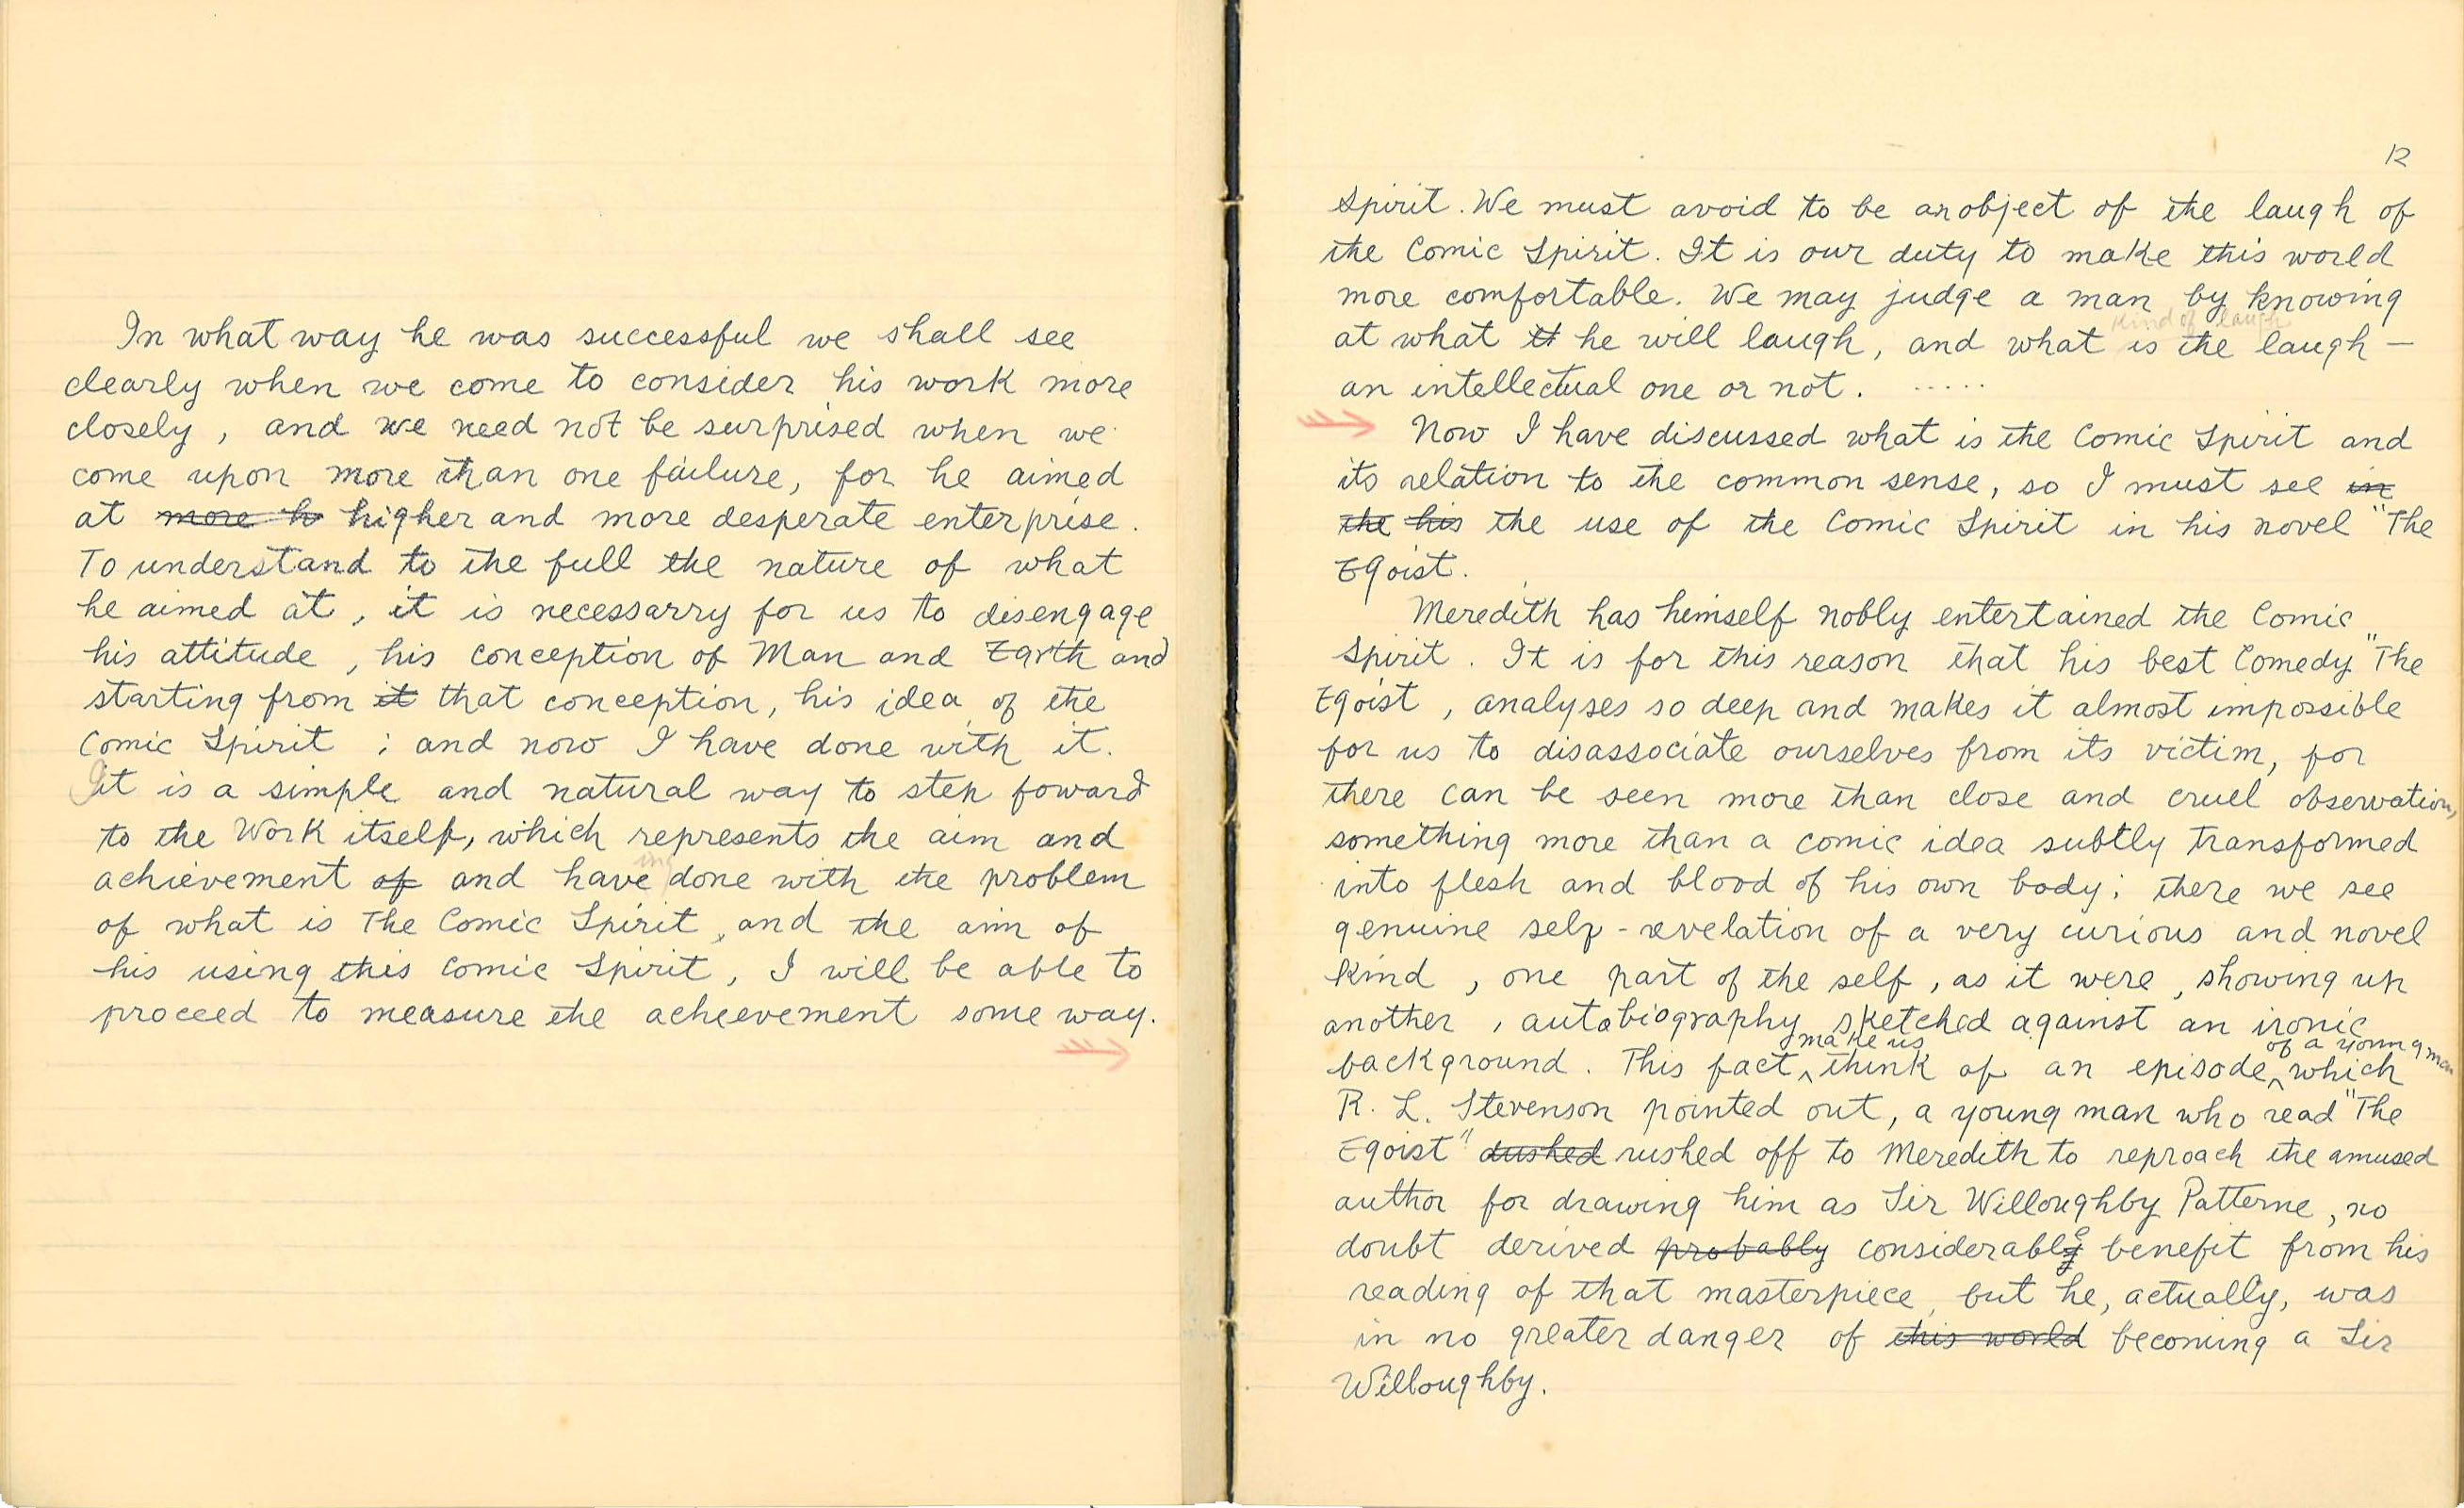 In what way he was successful we shall see
clearly when we come to consider his work more
closely, and we need not be surprised when we
come upon more than one failure, for he aimed
at more h higher and more desperate enterprise.
To understand to the full the nature of what
he aimed at, it is necessarry for us to disengage
his attitude, his conception of Man and Earth and
starting from it that conception, his idea of the
Comic Spirit; and now I have done with it.
It is a simple and natural way to step foward
to the Work itself, which represents the aim and
ing
achievement of and have done with the problem
of what is The Comic Spirit, and the aim of
his using this Comic Spirit, I will be able to
proceed to measure the acheevement some way.
12
Spirit. We must avoid to be an object of the laugh of
the Comic Spirit. It is our duty to make this world
more comfortable. We may judge a man by knowing
kind of laugh
at what it he will laugh, and what is the laugh —
an intellectual one or not. .....
Now I have discussed what is the Comic Spirit and
its relation to the common sense, so I must see in
the his the use of the Comic Spirit in his novel "The
Egoist.
Meredith has himself nobly entertained the Comic
Spirit. It is for this reason that his best Comedy "The
Egoist, analyses so deep and makes it almost impossible
for us to disassociate ourselves from its victim, for
there can be seen more than close and cruel observation,
something more than a comic idea subtly transformed
into flesh and blood of his own body; there we see
genuine self-revelation of a very curious and novel
kind, one part of the self, as it were, showing up
another, autobiography sketched against an ironic
make us of a young man
background. This fact think of an episode which
R. L. Stevenson pointed out, a young man who read "The
Egoist" dushed rushed off to Meredith to reproach the amused
author for drawing him as Sir Willoughby Patterne, no
doubt derived probably considerable benefit from his
reading of that masterpiece, but he, actually, was
in no greater danger of this world becoming a Sir
Willoughby.